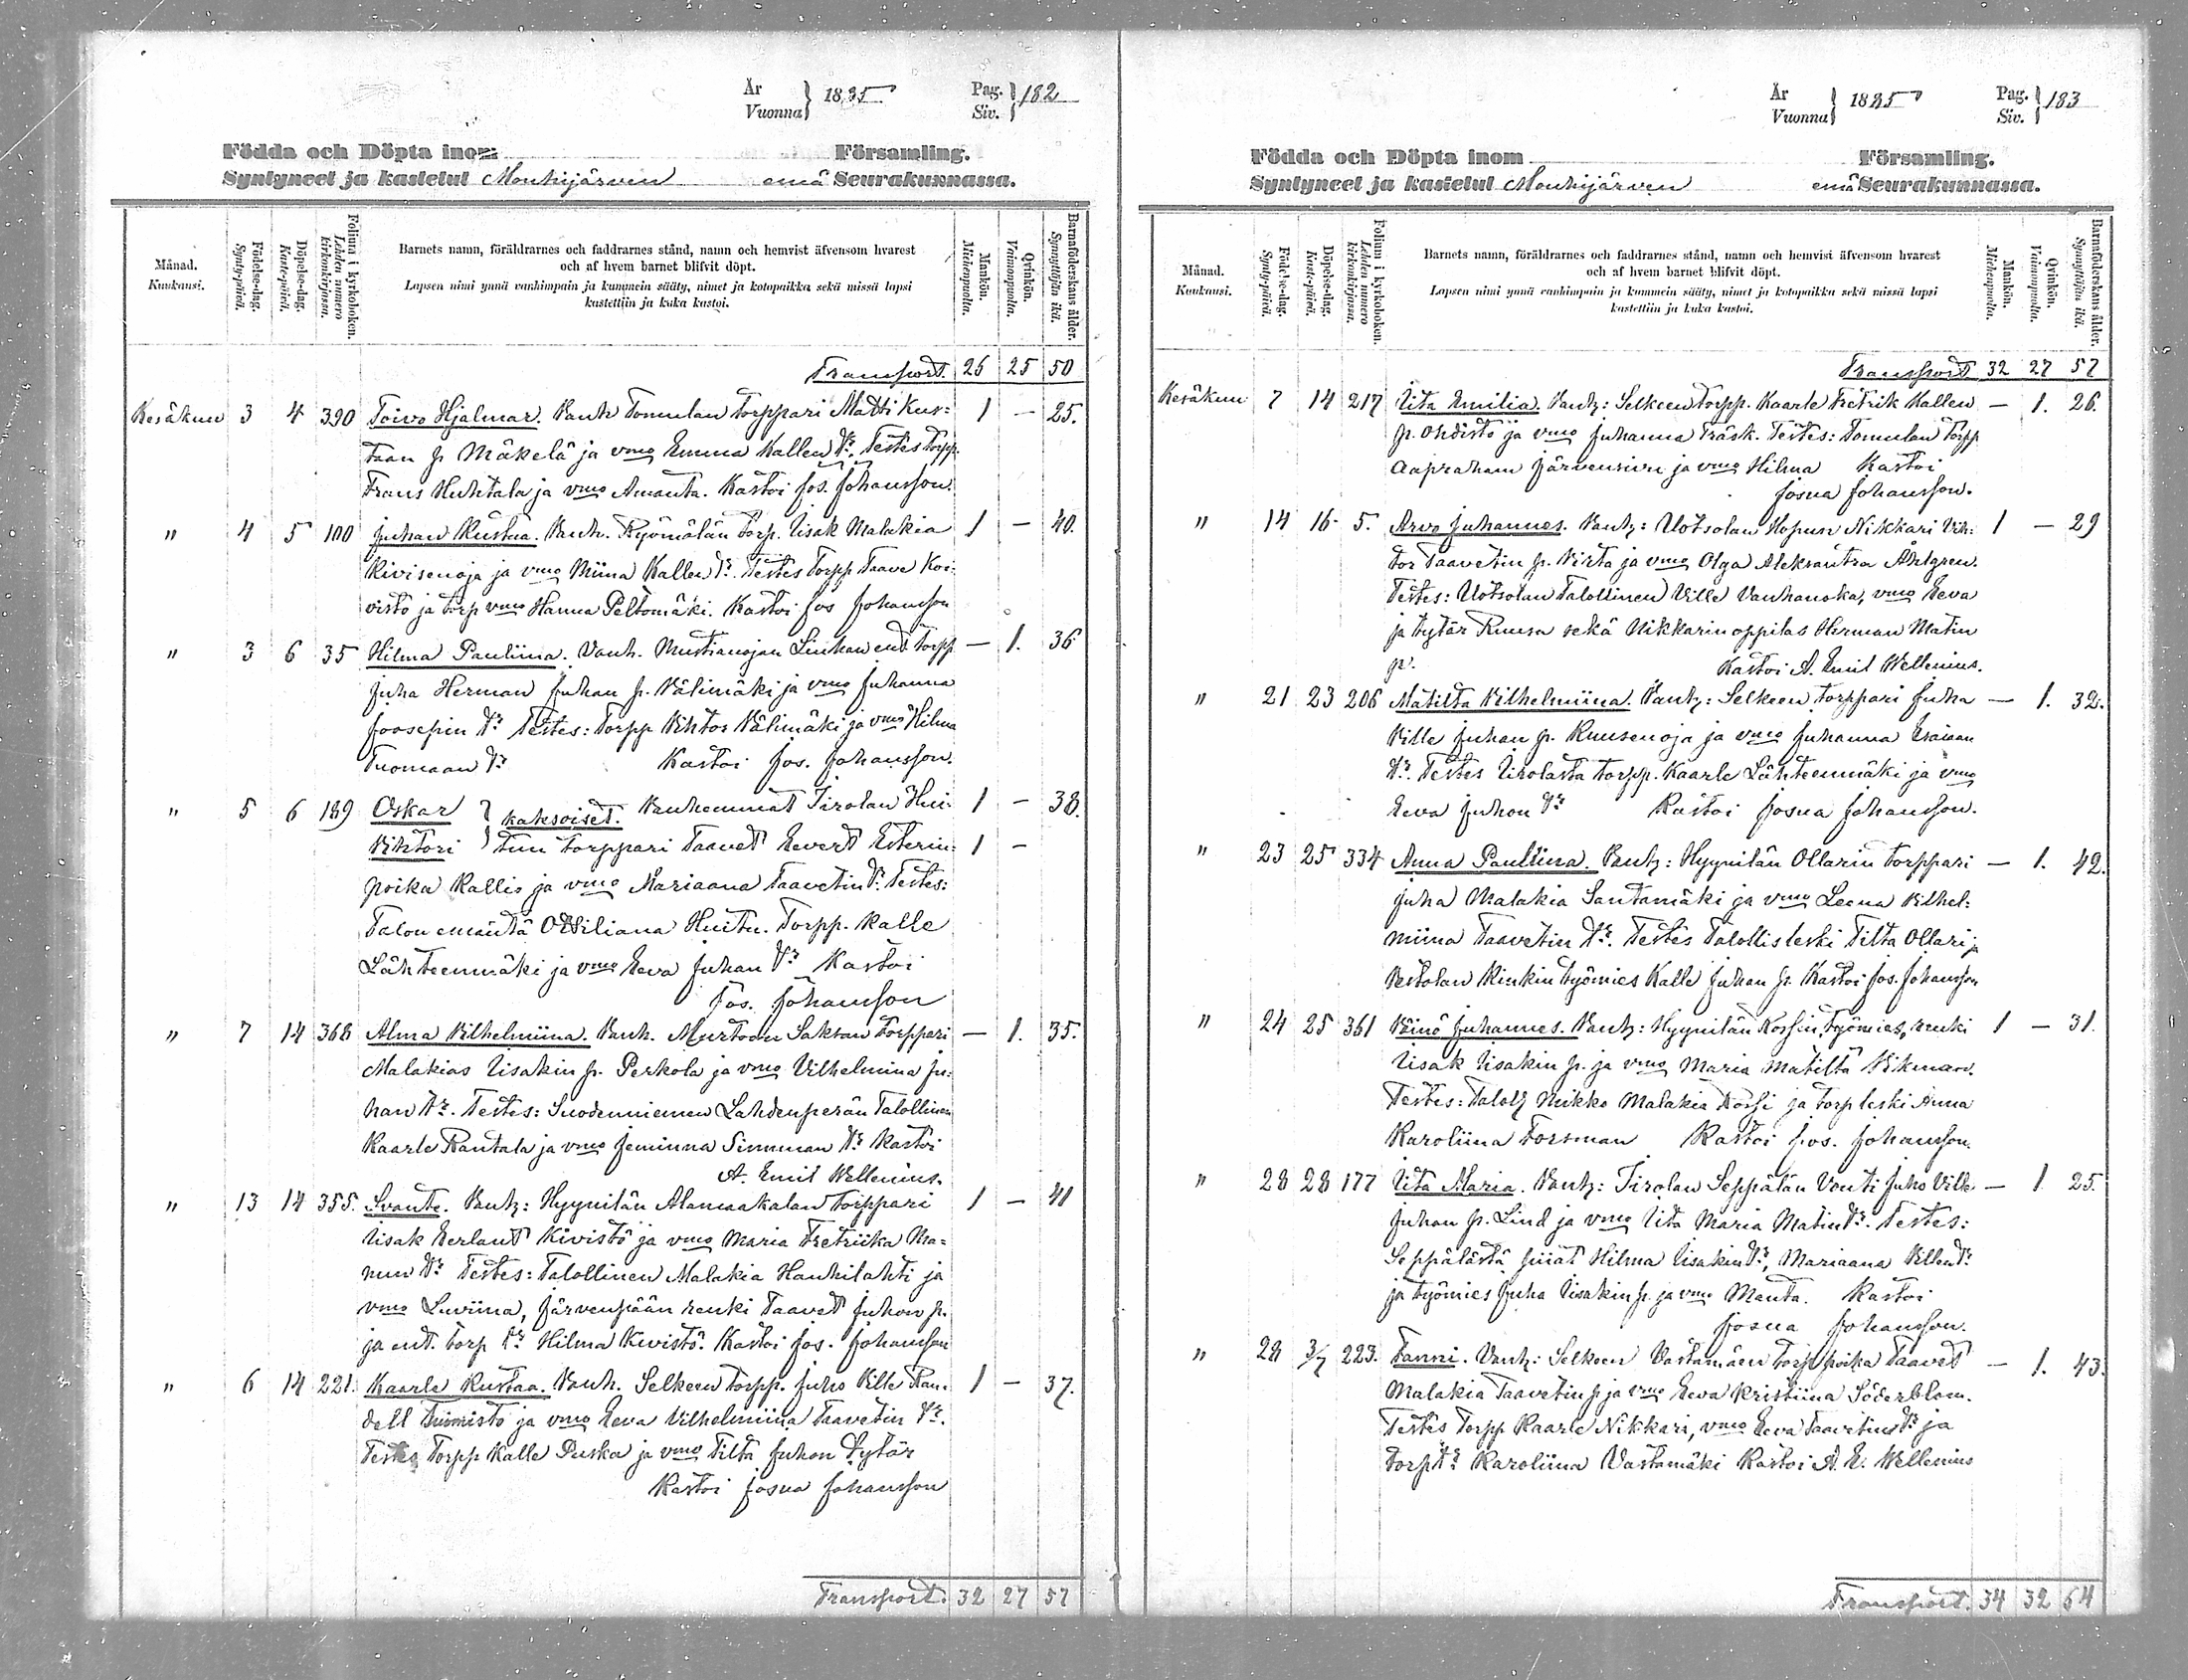 År
Vuonna } 1895
Pag.
Siv. } 182
Födda och Döpta inom Församling.
Syntyneet ja kastetut Mouhijärven emä Seurakunnassa.
Månad.
Kuukausi.
Födelse-dag.
Synty-päivä.
Döpelse-dag.
Kaste-päivä.
Folium i kyrkoboken.
Lehden numero kirkonkirjassa.
Barnets namn, föräldrarnes och faddrarnes stånd, namn och hemvist äfvensom hvarest
och af hvem barnet blifvit döpt.
Lapsen nimi ynnä vanhimpain ja kummein sääty, nimet ja kotopaikka sekä missä lapsi
kastettiin ja kuka kastoi.
Mankön.
Miehenpuolta.
Qvinkön.
Vaimonpuolta.
Barnaföderskans ålder.
Synnyttäjän ikä.
Transport. 26 25 50
Kesäkuu 3 4 390 Toivo Hjalmar. Vanh Tomulan Torppari Matti Kus- 1 — 25.
taan p Mäkelä ja vmo Emma Kallen tr. Testes Torpp.
Frans Huhtala ja vmo Amanta. Kastoi Jos. Johansson.
" 4 5 100 Juhan Kustaa. Vanh. Ryömälän torp. Iisak Malakia 1 — 40.
Kivisenoja ja vmo Miina Kallen tr. Testes Torpp Taave Koi-
visto ja torp vmo Hanna Peltomäki. Kastoi Jos Johansson
" 3 6 35 Hilma Pauliina. Vanh. Mustianojan Linhan ent torpp — 1. 36
Juha Herman Juhan p. Välimäki ja vmo Juhanna
Joosepin tr Testes: Torpp Vihtor Välimäki ja vmo Hilma
Tuomaan tr Kastoi Jos. Johansson.
" 5 6 189 Oskar } kaksoiset. Vanhemmat Tirolan Hui- 1 — 38.
Vihtori } tun torppari Taavet Eevert Esterin- 1 —
poika Kallio ja vmo Mariaana Taavetin tr. Testes:
Talon emäntä Ottiliana Huitu. Torpp. Kalle
Lähteenmäki ja vmo Eeva Juhan tr Kastoi
Jos. Johansson
" 7 14 368 Alma Vilhelmiina. Vanh. Murtoon Saksan Torppari — 1. 35.
Malakias Iisakin p. Perkola ja vmo Vilhelmina Ju-
han tr. Testes: Suodenniemen Lahdenperän Talollinen
Kaarle Rantala ja vmo Jeminna Simman tr Kastoi
A. Emil Wellenius.
" 13 14 355. Svante. Vanh: Hyynilän Alamaakalan torppari 1 — 41
Iisak Eerlant Kivistö ja vmo Maria Fretriika Ma-
nun tr Testes: Talollinen Malakia Hauhilahti ja
vmo Luviina, Järvenpään renki Taavet Juhon p.
ja ent. torp tr Hilma Kivistö. Kastoi Jos. Johansson
" 6 14 221. Kaarle Kustaa. Vanh. Selkeen Torpp. Juho Ville Ran- 1 — 37.
dell Tuomisto ja vmo Eeva Vilhelmiina Taavetin tr.
Testes Torpp Kalle Puska ja vmo Tilta Juhon tytär
Kastoi Josua Johansson
Transport. 32 27 57
År
Vuonna } 1895
Pag.
Siv. } 183
Födda och Döpta inom Församling.
Syntyneet ja kastetut Mouhijärven emä Seurakunnassa.
Månad.
Kuukausi.
Födelse-dag.
Synty-päivä.
Döpelse-dag.
Kaste-päivä.
Folium i kyrkoboken.
Lehden numero kirkonkirjassa.
Barnets namn, föräldrarnes och faddrarnes stånd, namn och hemvist äfvensom hvarest
och af hvem barnet blifvit döpt.
Lapsen nimi ynnä vanhimpain ja kummein sääty, nimet ja kotopaikka sekä missä lapsi
kastettiin ja kuka kastoi.
Mankön.
Miehenpuolta.
Qvinkön.
Vaimonpuolta.
Barnaföderskans ålder.
Synnyttäjän ikä.
Transport 32 27 57
Kesäkuu 7 14 217 Iita Emilia. Vanh: Selkeen torpp. Kaarle Fretrik Kallen — 1. 26.
p. Ohdisto ja vmo Juhanna Träsk. Testes: Tomulan torpp
Aapraham Järvensivu ja vmo Hilma Kastoi
Josua Johansson.
" 14 16 5. Arvo Juhannes. Vanh: Uotsolan Hopun Nikkari Vih- 1 — 29
tor Taavetin p. Virta ja vmo Olga Aleksantra Åhlgren.
Testes: Uotsolan Talollinen Ville Vanhanoka, vmo Eeva
ja tytär Ruusa sekä Nikkarinoppilas Herman Matin
p. Kastoi A. Emil Wellenius.
" 21 23 206 Matilta Vilhelmiina. Vanh: Selkeen torppari Juha — 1. 32.
Ville Juhan p. Ruusenoja ja vmo Juhanna Esaiaan
tr. Testes Tirolasta torpp. Kaarle Lähteenmäki ja vmo
Eeva Juhon tr Kastoi Josua Johansson.
" 23 25 334 Anna Pauliina. Vanh: Hyynilän Ollarin torppari — 1. 42.
Juha Malakia Santamäki ja vmo Leena Vilhel-
miina Taavetin tr. Testes Talollisleski Tilta Ollari ja
Vestolan Kinkin työmies Kalle Juhan p. Kastoi Jos. Johansson
" 24 25 361 Väinö Juhannes. Vanh: Hyynilän Kossin työmies, renki 1 — 31.
Iisak Iisakin p. ja vmo Maria Matilta Vikman.
Testes: Taloll Mikko Malakia Kossi ja torp leski Anna
Karoliina Forsman Kastoi Jos. Johansson.
" 28 28 177 Iita Maria. Vanh: Tirolan Seppälän Vouti Juho Ville — 1 25.
Juhan p. Lind ja vmo Iita Maria Matin tr. Testes:
Seppälästä piiat Hilma Iisakin tr, Mariaana Villen tr
ja työmies Juha Iisakin p. ja vmo Manta. Kastoi
Josua Johansson.
" 28 3/7 223. Fanni. Vanh: Selkeen Vastamäen torp poika Taavet — 1. 43.
Malakia Taavetin p ja vmo Eeva Kristiina Söderblom.
Testes Torpp Kaarle Nikkari, vmo Eeva Taavetin tr ja
torp tr Karoliina Vastamäki Kastoi A. E. Wellenius
Transport. 34 32 64